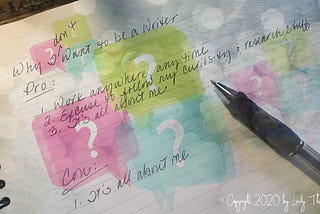 don't
Why I ^ Want to be a writer
Pro:
1. Work anywhere any time
2. Excuse to follow my curiosity & research stuff
3. It's all about me
Con:
1. It's all about me
? ? ? ?
Copyright 2020 by Lady